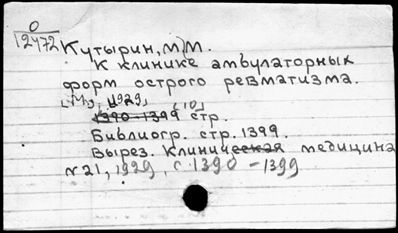 0
12472
Кутырин, М.М.
К клинике амбулаторных
форм острого ревматизма.
[М], 1929, [10]
1390-1399 стр.
Библиогр. стр. 1399.
Вырез. Клиническая медицина
№21, 1929, с 1390-1399